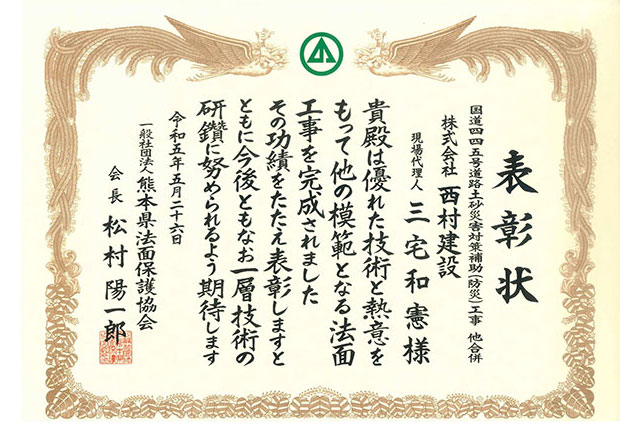 表彰状
国道四四五号道路土砂災害対策補助(防災)工事 他合併
株式会社 西村建設
現場代理人 三宅和憲様
貴殿は優れた技術と熱意を
もって他の模範となる法面
工事を完成されました
その功績をたたえ表彰しますと
ともに今後ともなお一層技術の
研鑽に努められるよう期待します
令和五年五月二十六日
一般社団法人 熊本県法面保護協会
会長 松村陽一郎